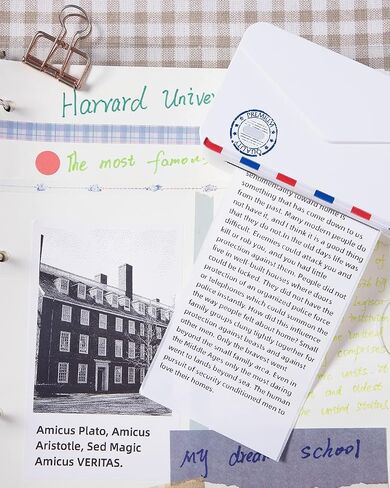 Harvard Unive
PREMIUM
QUALITY
The most famou
sentimentality toward home is
something that has come down to us
from the past. Many modern people do
not have it, and I think it is a good thing
that they do not. In the old days life was
difficult. Enemies could attack you and
kill or rob you, and you had little
protection against them. People did not
live in well-built houses where doors
could be locked. They did not have the
protection of an organized police force
or telephones which could summon the
police instantly. How did this influence
the way people felt about home? Small
family groups clung tightly together for
protection against beasts and against
other men. Only the bravest went
beyond the small family area. Even in
the Middle Ages only the most daring
went to lands beyond sea. The human
love their homes.
Amicus Plato, Amicus
Aristotle, Sed Magic
Amicus VERITAS.
My dream school